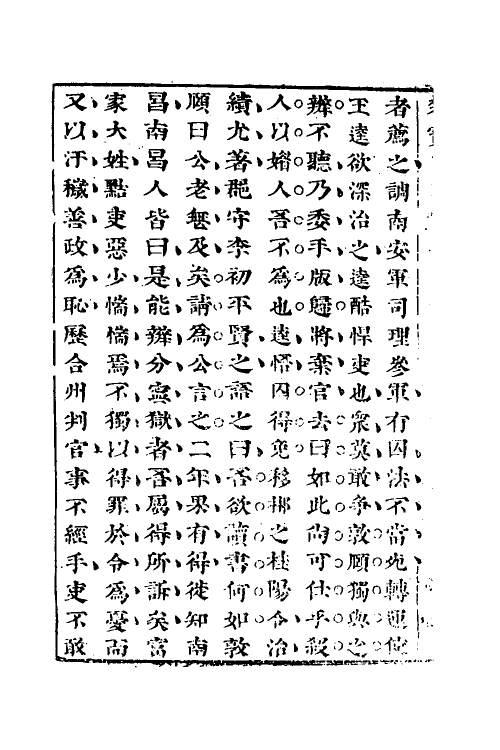 者薦之調南安軍司理參軍有囚法不當死轉運使
王逵欲深治之逵酷悍吏也衆莫敢爭敦頤獨與之
辨不聽乃委手版歸將棄官去曰如此尚可仕乎殺
人以媚人吾不為也逵悟囚得免移郴之桂陽令治
績尤著郡守李初平賢之語之曰吾欲讀書何如敦
頤曰公老無及矣請為公言之二年果有得徙知南
昌南昌人皆曰是能辨分寧獄者吾屬得所訴矣富
家大姓黠吏惡少惴惴焉不獨以得罪於令為憂而
又以汙穢善政為恥歷合州判官事不經手吏不敢